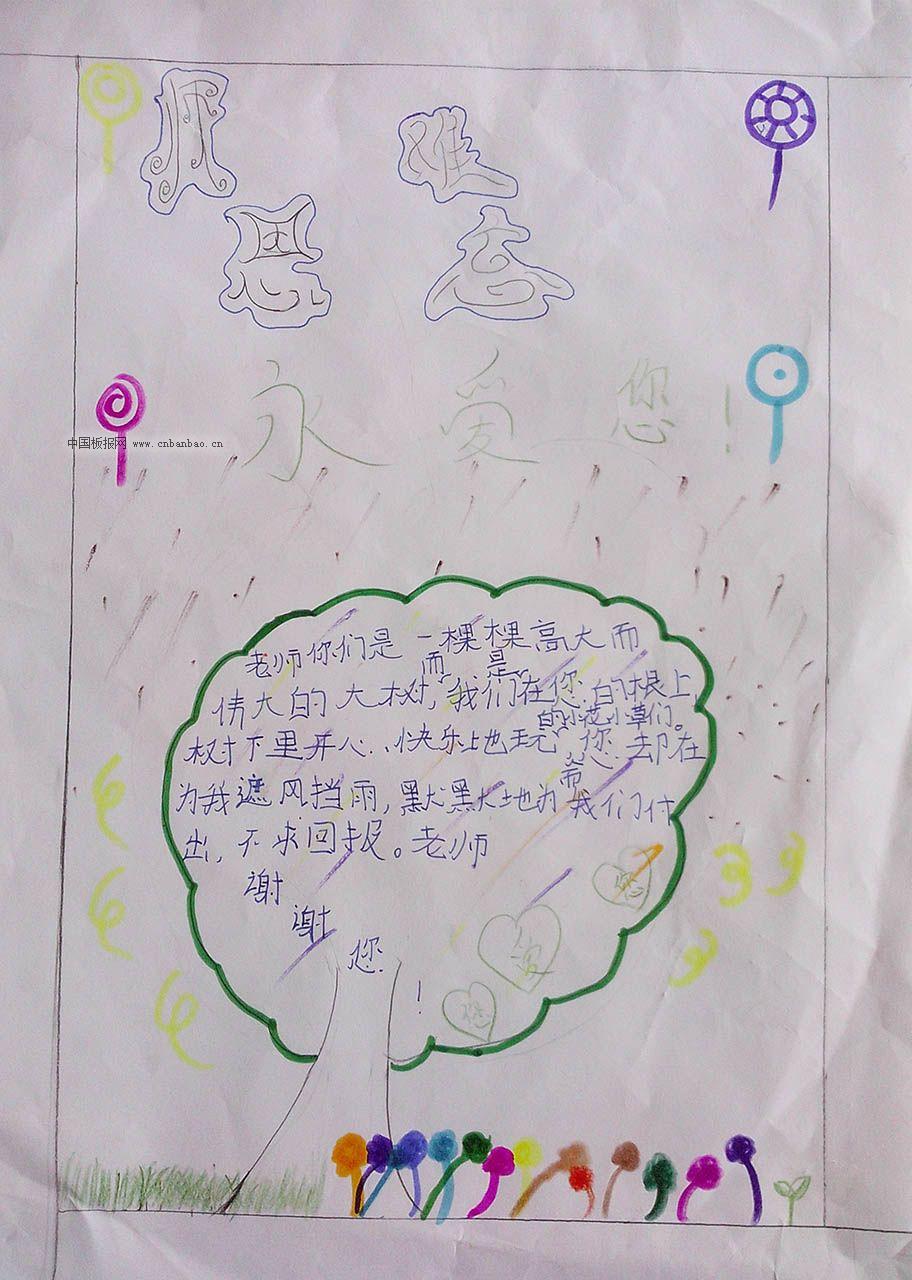 师 难
恩 忘
永爱您!
中国板报网 www.cnbanbao.cn
老师你们是一棵棵高大而
而 是
伟大的大树,我们在您的根上,
的小花小草们。
树下里开心、快乐地玩,您却在
而
为我遮风挡雨,默默地为我们付
出,不求回报。老师
谢
谢
您
!
您
爱
您